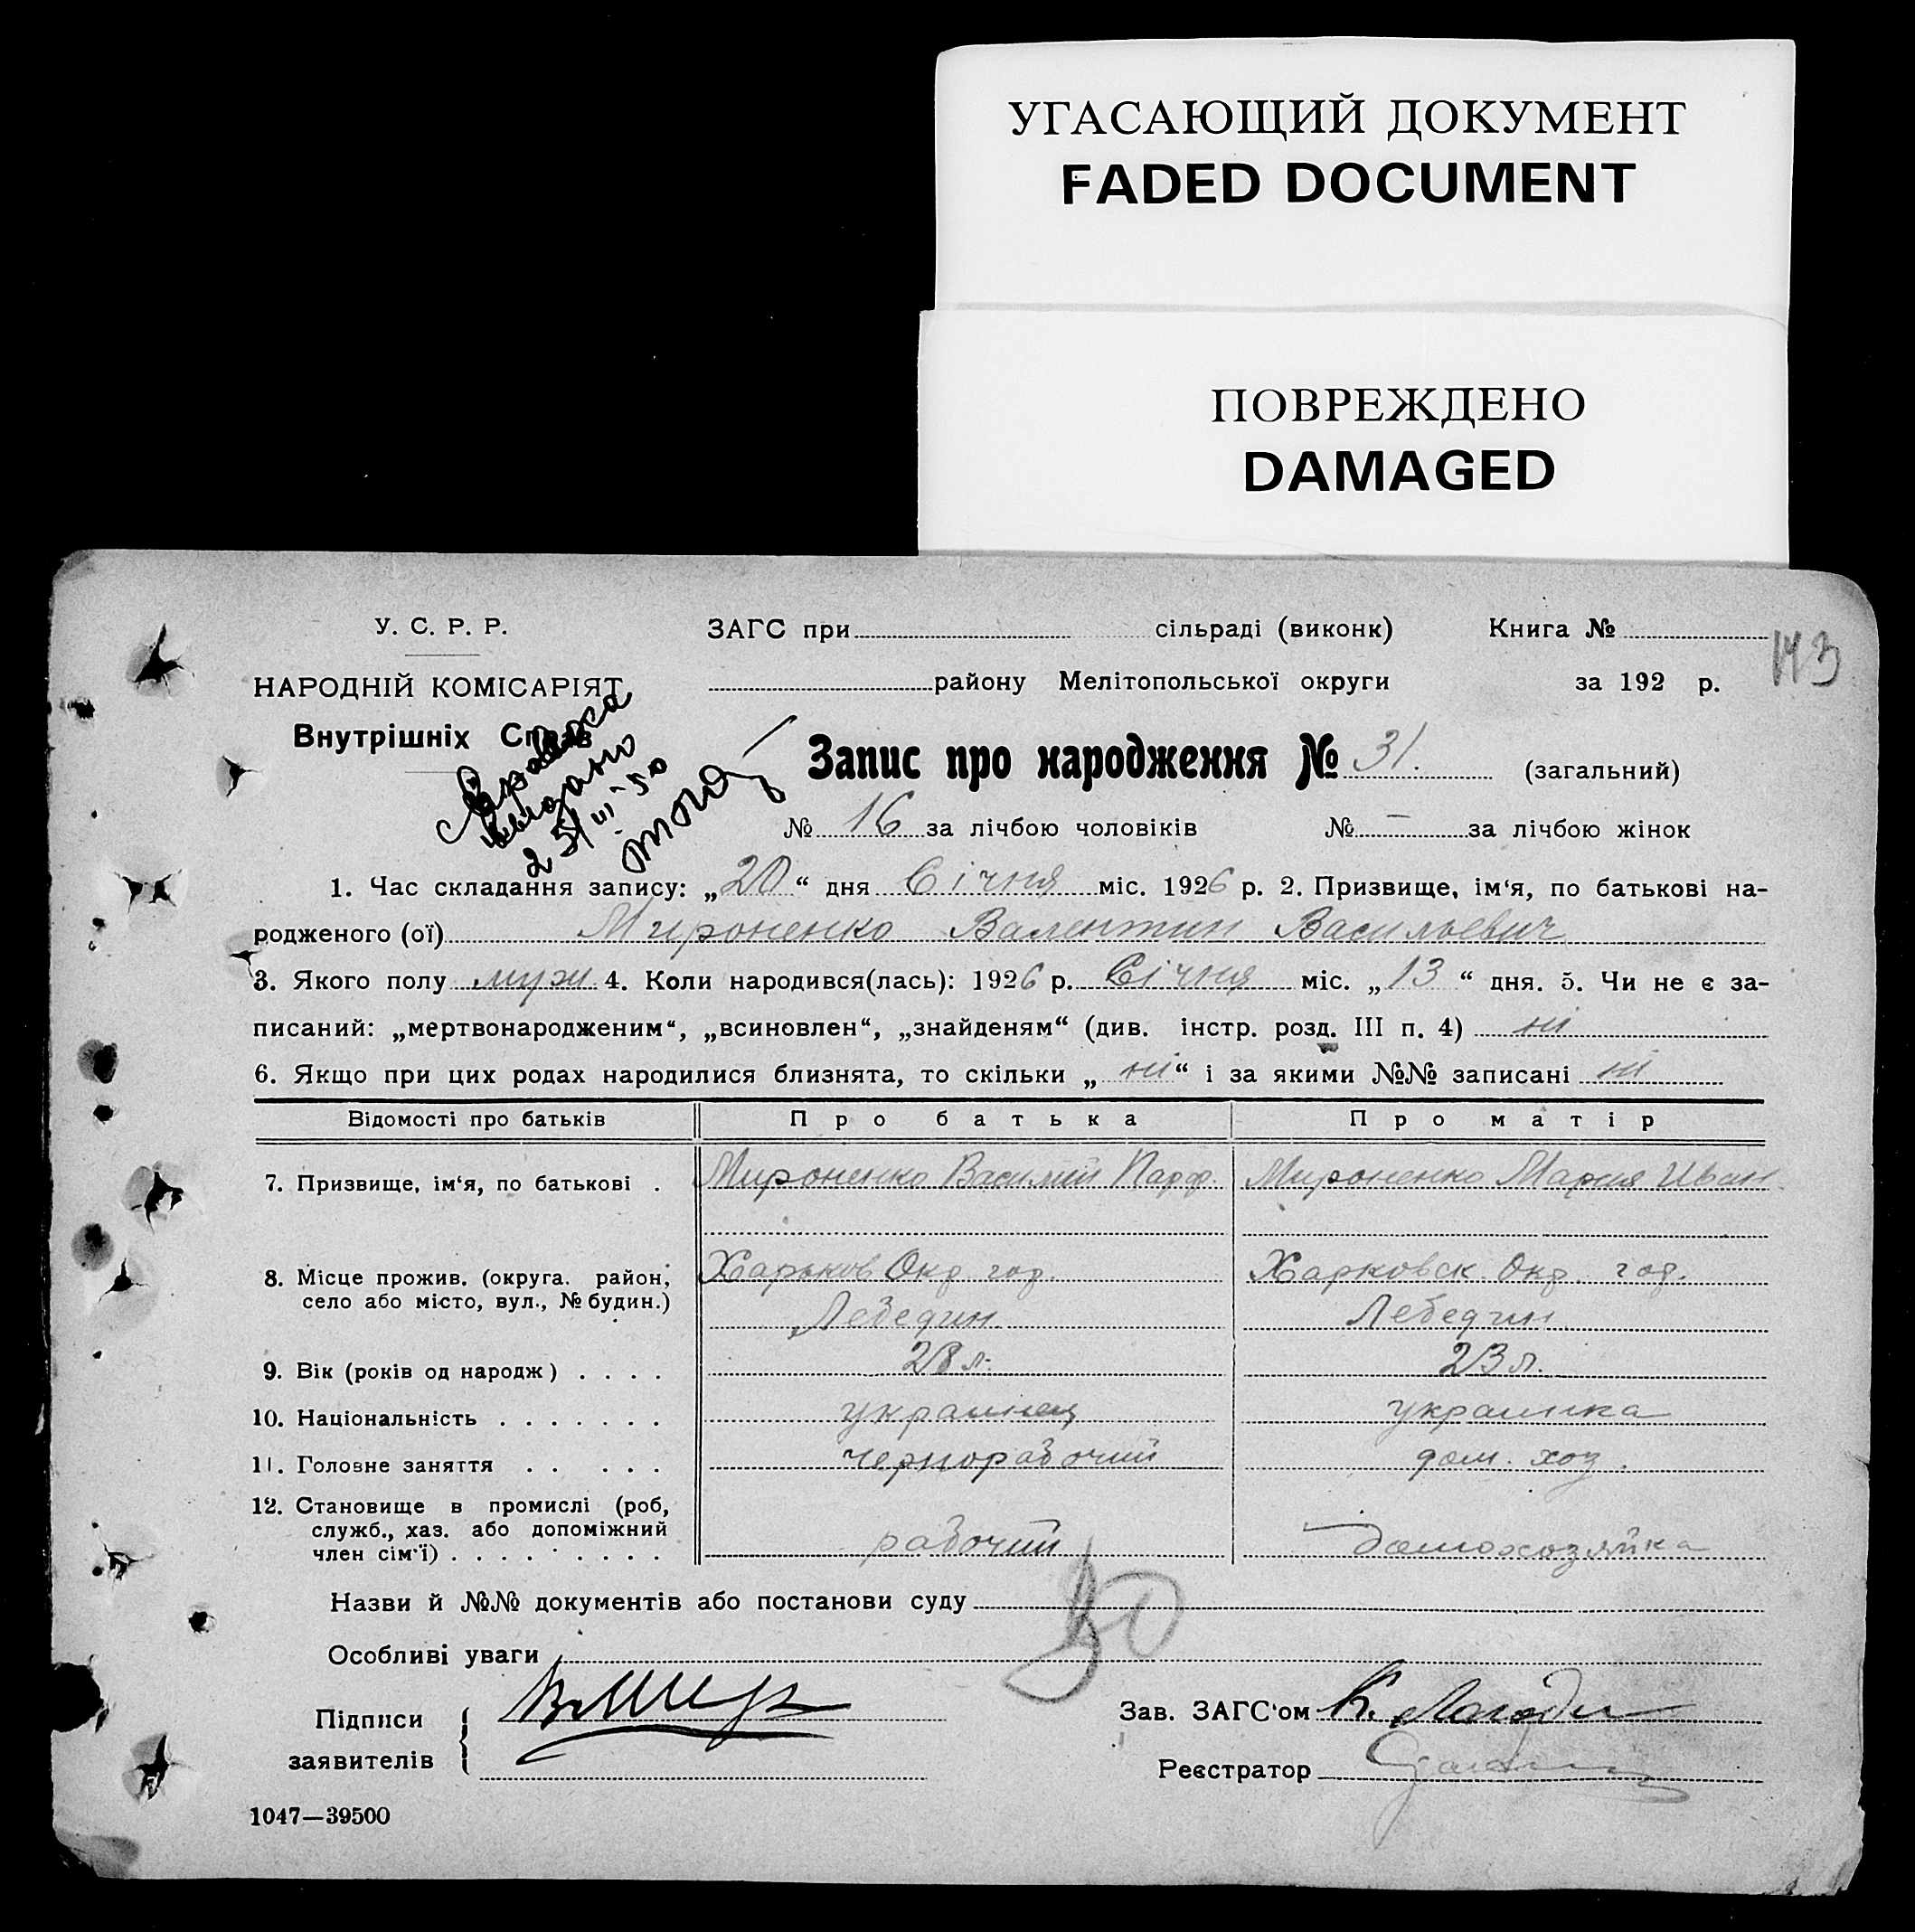 УГАСАЮЩИЙ ДОКУМЕНТ
FADED DOCUMENT
ПОВРЕЖДЕНО
DAMAGED
У. С. Р. Р.
НАРОДНІЙ КОМІСАРІЯТ
Внутрішніх Справ
ЗАГС при сільраді (виконк) Книга №
143
району Мелітопольської округи за 192 р.
Справка
видано
25/III-50
Запис про народження № 31. (загальний)
№ 16 за лічбою чоловіків № — за лічбою жінок
1. Час складання запису: „20“ дня Січня міс. 1926 р. 2. Призвище, ім‘я, по батькові на-
родженого (ої) Мироненко Валентин Васильевич
3. Якого полу муж 4. Коли народився(лась): 1926 р. Січня міс. „13“ дня. 5. Чи не є за-
писаний: „мертвонародженим“, „всиновлен“, „знайденям“ (див. інстр. розд. III п. 4) ні
6. Якщо при цих родах народилися близнята, то скільки „ні“ і за якими №№ записані ні
Відомості про батьків Про батька Про матір
7. Призвище, ім‘я, по батькові . Мироненко Василий Парф. Мироненко Мария Иван.
8. Місце прожив. (округа. район, Харьков Окр. гор. Харковск. Окр. гор.
село або місто, вул., № будин.) Лебедин Лебедин
9. Вік (років од народж) . . . . 28 л. 23 л.
10. Національність . . . . . . . украинец украинка
11. Головне заняття . . . . . чернорабочий дом. хоз.
12. Становище в промислі (роб,
служб., хаз. або допоміжний
член сім‘ї) . . . . . . . . . рабочий домохозяйка
Назви й №№ документів або постанови суду
50
Особливі уваги
Підписи
заявителів
Зав. ЗАГС‘ом
Реєстратор
1047—39500